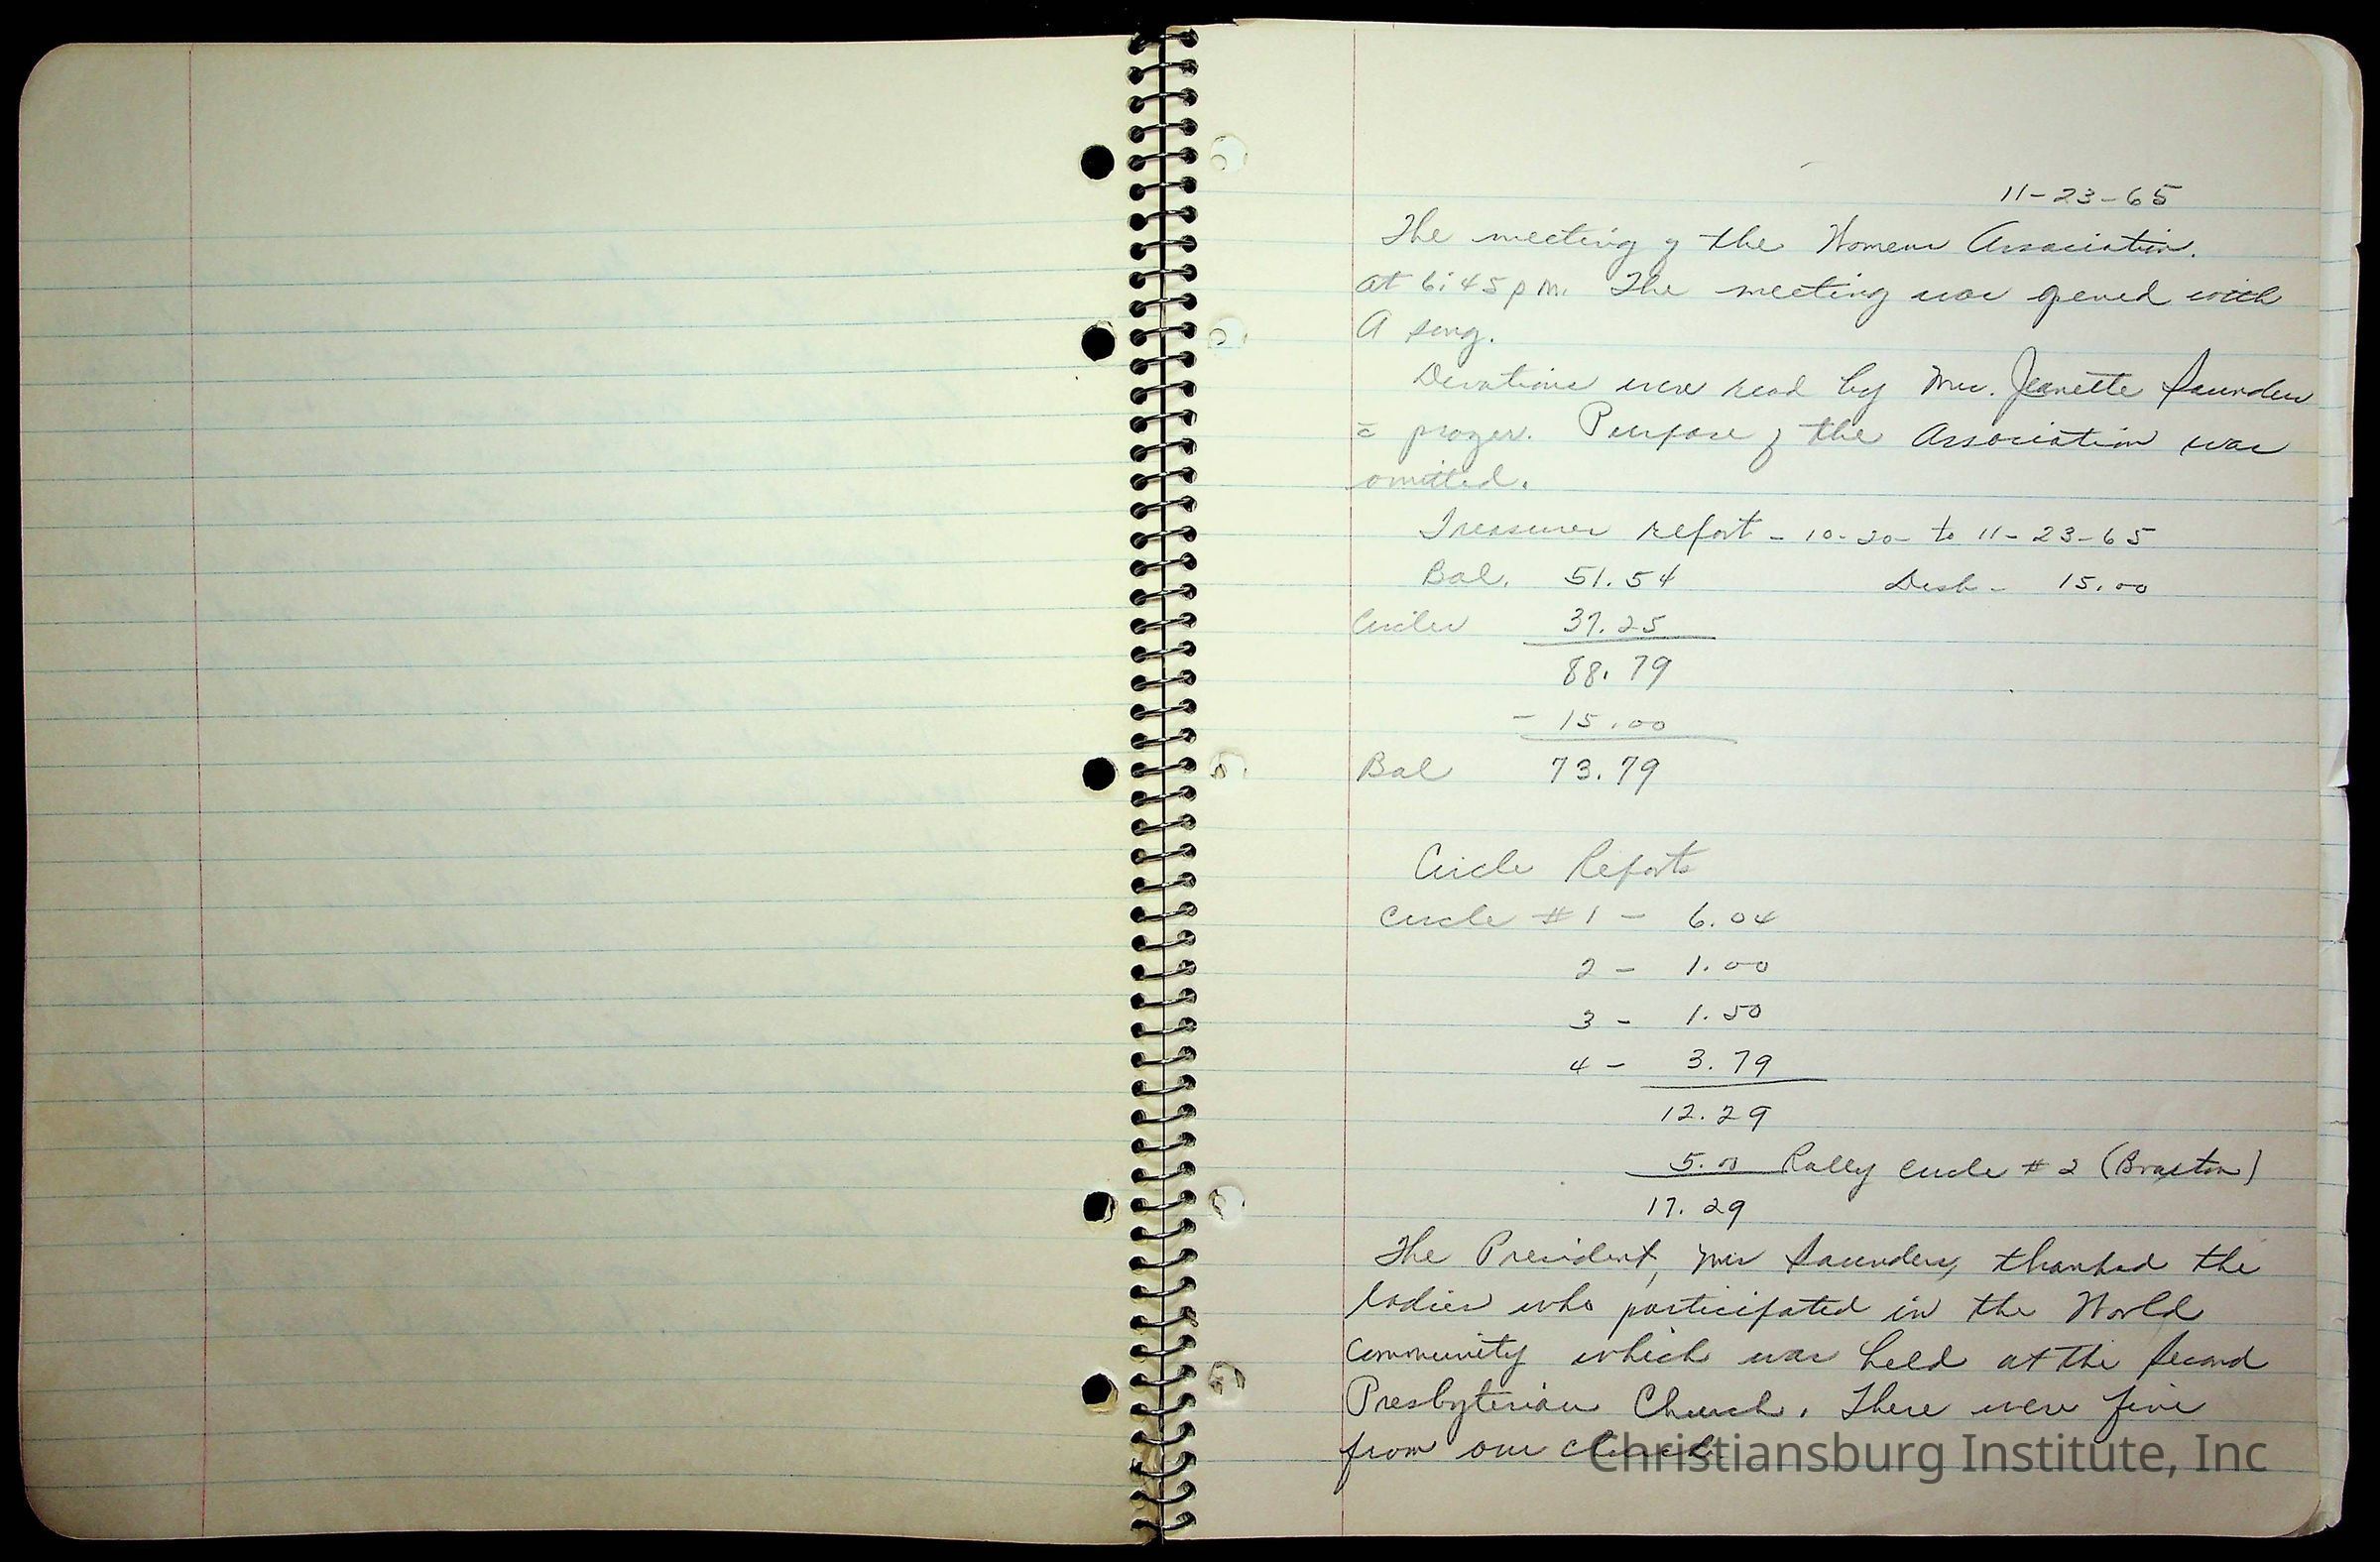 11-23-65
The meeting of the Womens Association.
at 6:45 p m. The meeting was opened with
A song.
Devotions were read by Mrs. Jeanette Saunders
c̄ prayer. Purpose of the Association was
omitted.
Treasurer report - 10-20- to 11-23-65
Bal. 51.54 Disb - 15.00
Circles 37.25
88.79
- 15.00
Bal 73.79
Circle Reports
Circle # 1 - 6.04
2 - 1.00
3 - 1.50
4 - 3.79
12.29
5.00 Rally Circle # 2 (Braxton)
17.29
The President, Mrs Saunders, thanked the
ladies who participated in the World
Community which was held at the Second
Presbyterian Church. There were five
from our church.
Christiansburg Institute, Inc